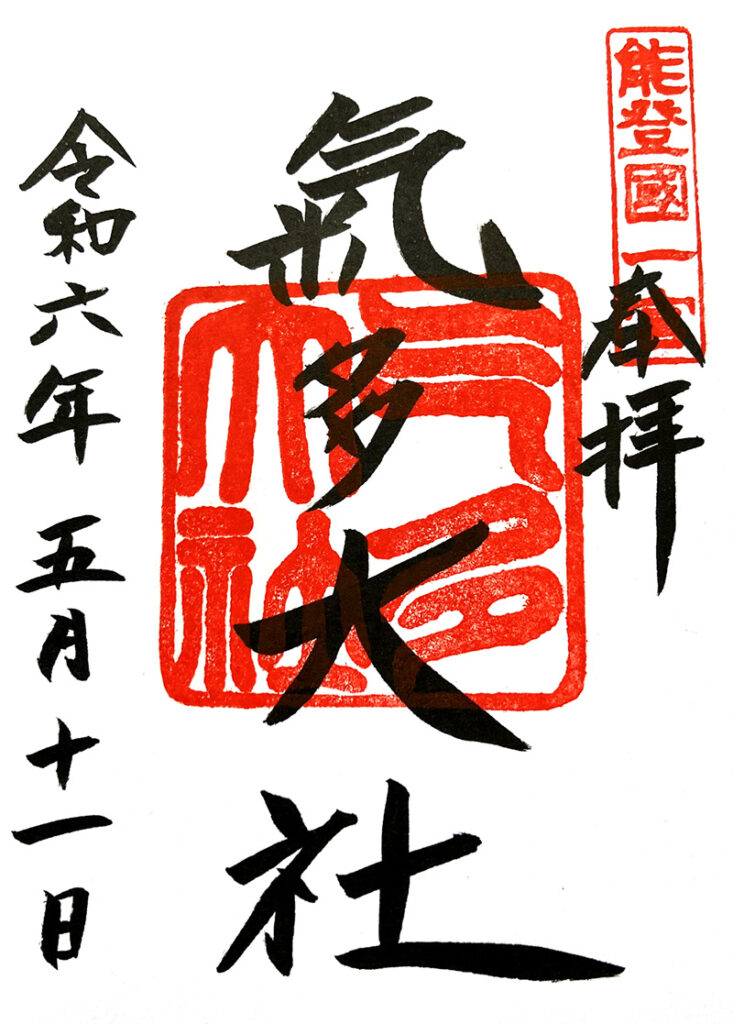 能登國一宮
奉拝
氣多大社
气多大社
令和六年 五月十一日